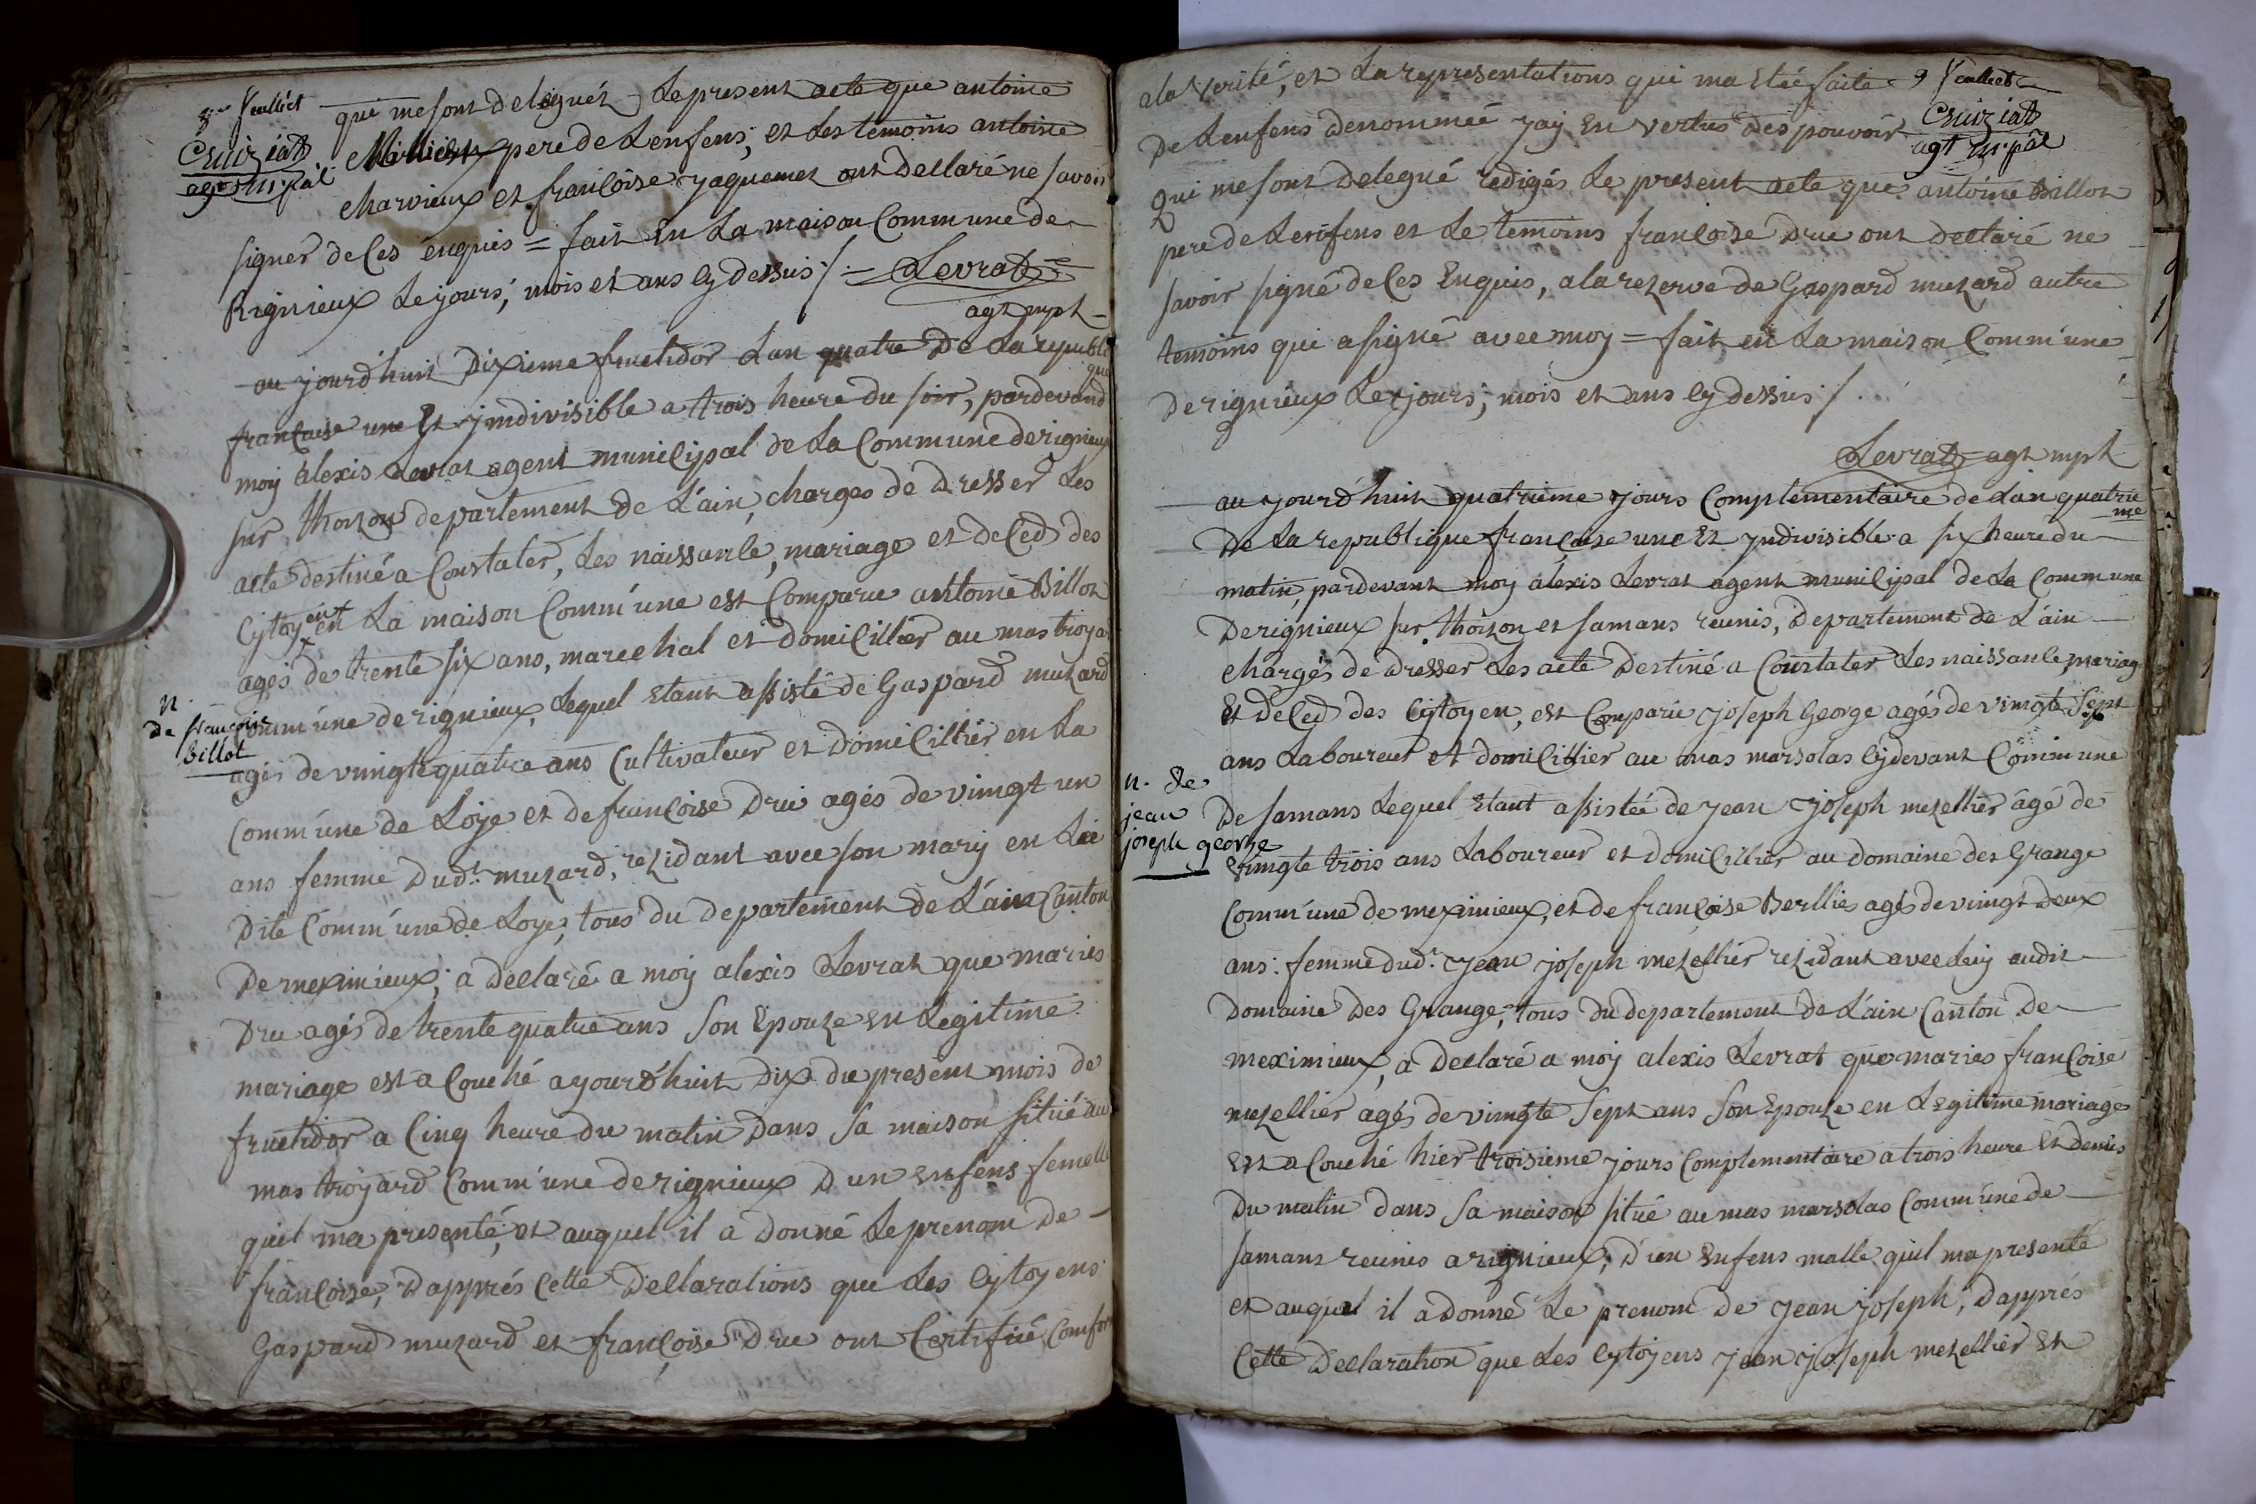 8me feuillet
Cruiziat
agt m.pâl
qui me sont delegués, Le present acte que antoine
pere de Lenfens, et Les temoins antoine
charvieux et françoise jaquemet ont declaré ne savoir
signer de Ces enquis = fait En La maison Commune de
Rignieux Le jours, mois et ans cy dessus /. = Levrat
agt mpl
au jourd'huit Dixieme fructidor Lan quatre De La republi
que
francaise une Et jndivisible a trois heure du soir, pardevand
moy alexis Levrat agent municipal de La Commune derignieux
sur Thoizon departement de L'ain, charges de Dresser Les
acte destiné a Constater, Les naissance, mariage et deCed des
Cytoyen en La maison Comm'une est Comparue antoine Billot
agés de trente six ans, marechal et domiCillier au mas troya
n.
de françoise
billot
Comm'une derignieux, Lequel Etant assisté de Gaspard muzard
agés de vuingte quatre ans Cultivateur et domiCillier en La
Comm'une de Loye et de françoise Drui agés de vuingt un
ans femme dudt. muzard, rezidant avec son mary en La
Dite Comm'une de Loye, tous du departement de L'ain Canton
De meximieux, a declaré a moy alexis Levrat que maries
Dru agés de trente quatre ans son Epouze en Legitime
mariage est a Couché ajourd'huit Dix du present mois de
fructidor a Cinq heure du matin Dans sa maison situé au
mas troyard Comm'une derignieux D'un Enfens femelle
quil ma presenté, et auquel il a donné Le prenom De
françoise, D'apprés Cette Declarations que Les Cytoyens
Gaspard muzard et françoise Dru ont Certifiié Comfor
9 feuillet
Cruiziat
agt m.pâl
ala Verité, et La representations qui ma Etée faite
De Lenfens denommée jay En Vertus des pouvoir
Qui me sont delegué redigés Le present acte que antoine Billot
pere de Lenfens et Le temoins françoise Drue ont declaré ne
savoir signé de Ces Enquis, ala rezerve de Gaspard muzard autre
temoins qui a signé avec moy = fait en La maison Comm'une
De rignieux Le jours, mois et ans cy dessus /.
Levrat agt mpl
au jourd'huit quatrieme jours Complementaire de Lan quatrie
me
De La republique francaise une Et yndivisible a six heure du
matin, pardevant moy alexis Levrat agent municipal de La Commune
De rignieux sur Thoizon et samans réunis, Departement de L'ain
chargés de dresser Les acte Destiné a Constater Les naissance, mariag
Et deCed des Cytoyen, est Comparu joseph George agés de vimgte Sept
ans Laboureur et domiCillier au mas marsolas cy devant Comm'une
n. de
jean
joseph george
De samans Lequel Etant assistée de jean joseph mezellier âgé de
Vimgte trois ans Laboureur et domiCillier au domaine des Grange
Comm'une de meximieux, et de françoise Berlliés agés de vimgt deux
ans: femme dudt. jean joseph mezellier rezidant avec Luy audit
Domaine Des Grange, tous du departement de L'ain Canton De
meximieux, a declaré a moy alexis Levrat que maries françoise
mezellier agés de vimgte sept ans son Epouze en Legitime mariage
Est a Couché hier troisieme jours Complementaire a trois heure Et demies
Du matin dans sa maison situé au mas marsolas Comm'une de
samans reunies a rignieux, D'un Enfens malle quil ma presenté
et auquel il a donné Le prenom de jean joseph, Dapprés
Cette Declaration que Les Cytoyens jean joseph mezellier Et